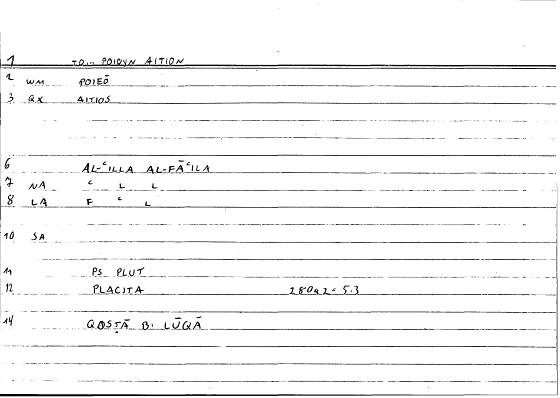 1 TO... POIOYN AITION
2 WM POIEŌ
3 QX AITIOS
6 AL-ʿILLA AL-FĀʿILA
7 NA ʿ L L
8 LA F ʿ L
10 SA
11 PS PLUT
12 PLACITA 280a2 = 5.3
14 QOSṬĀ B. LŪQĀ